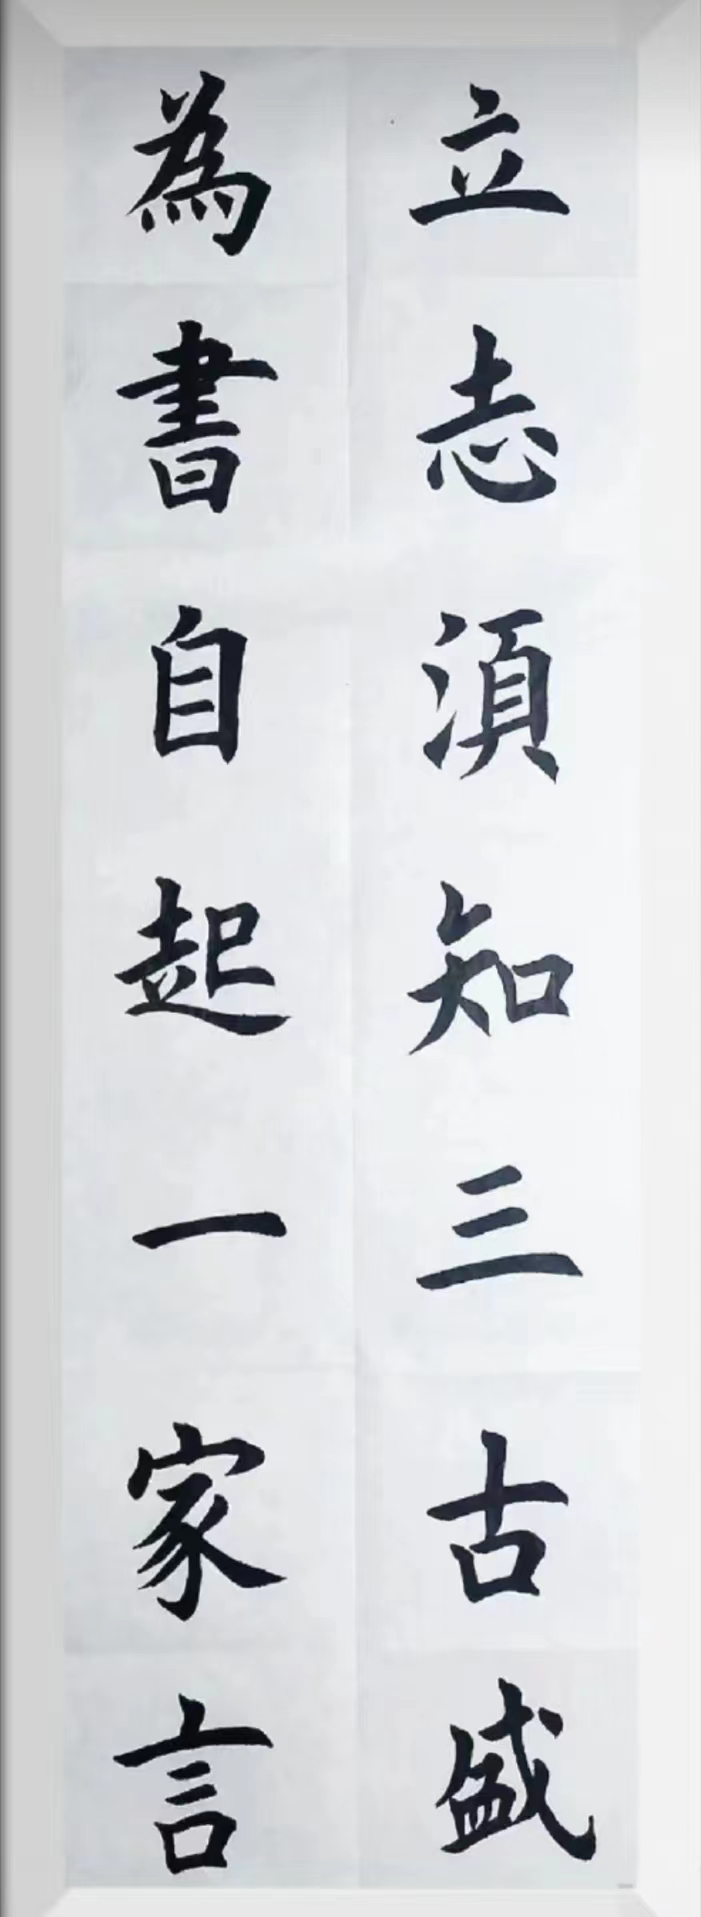 立志湏知三古盛
為書自起一家言